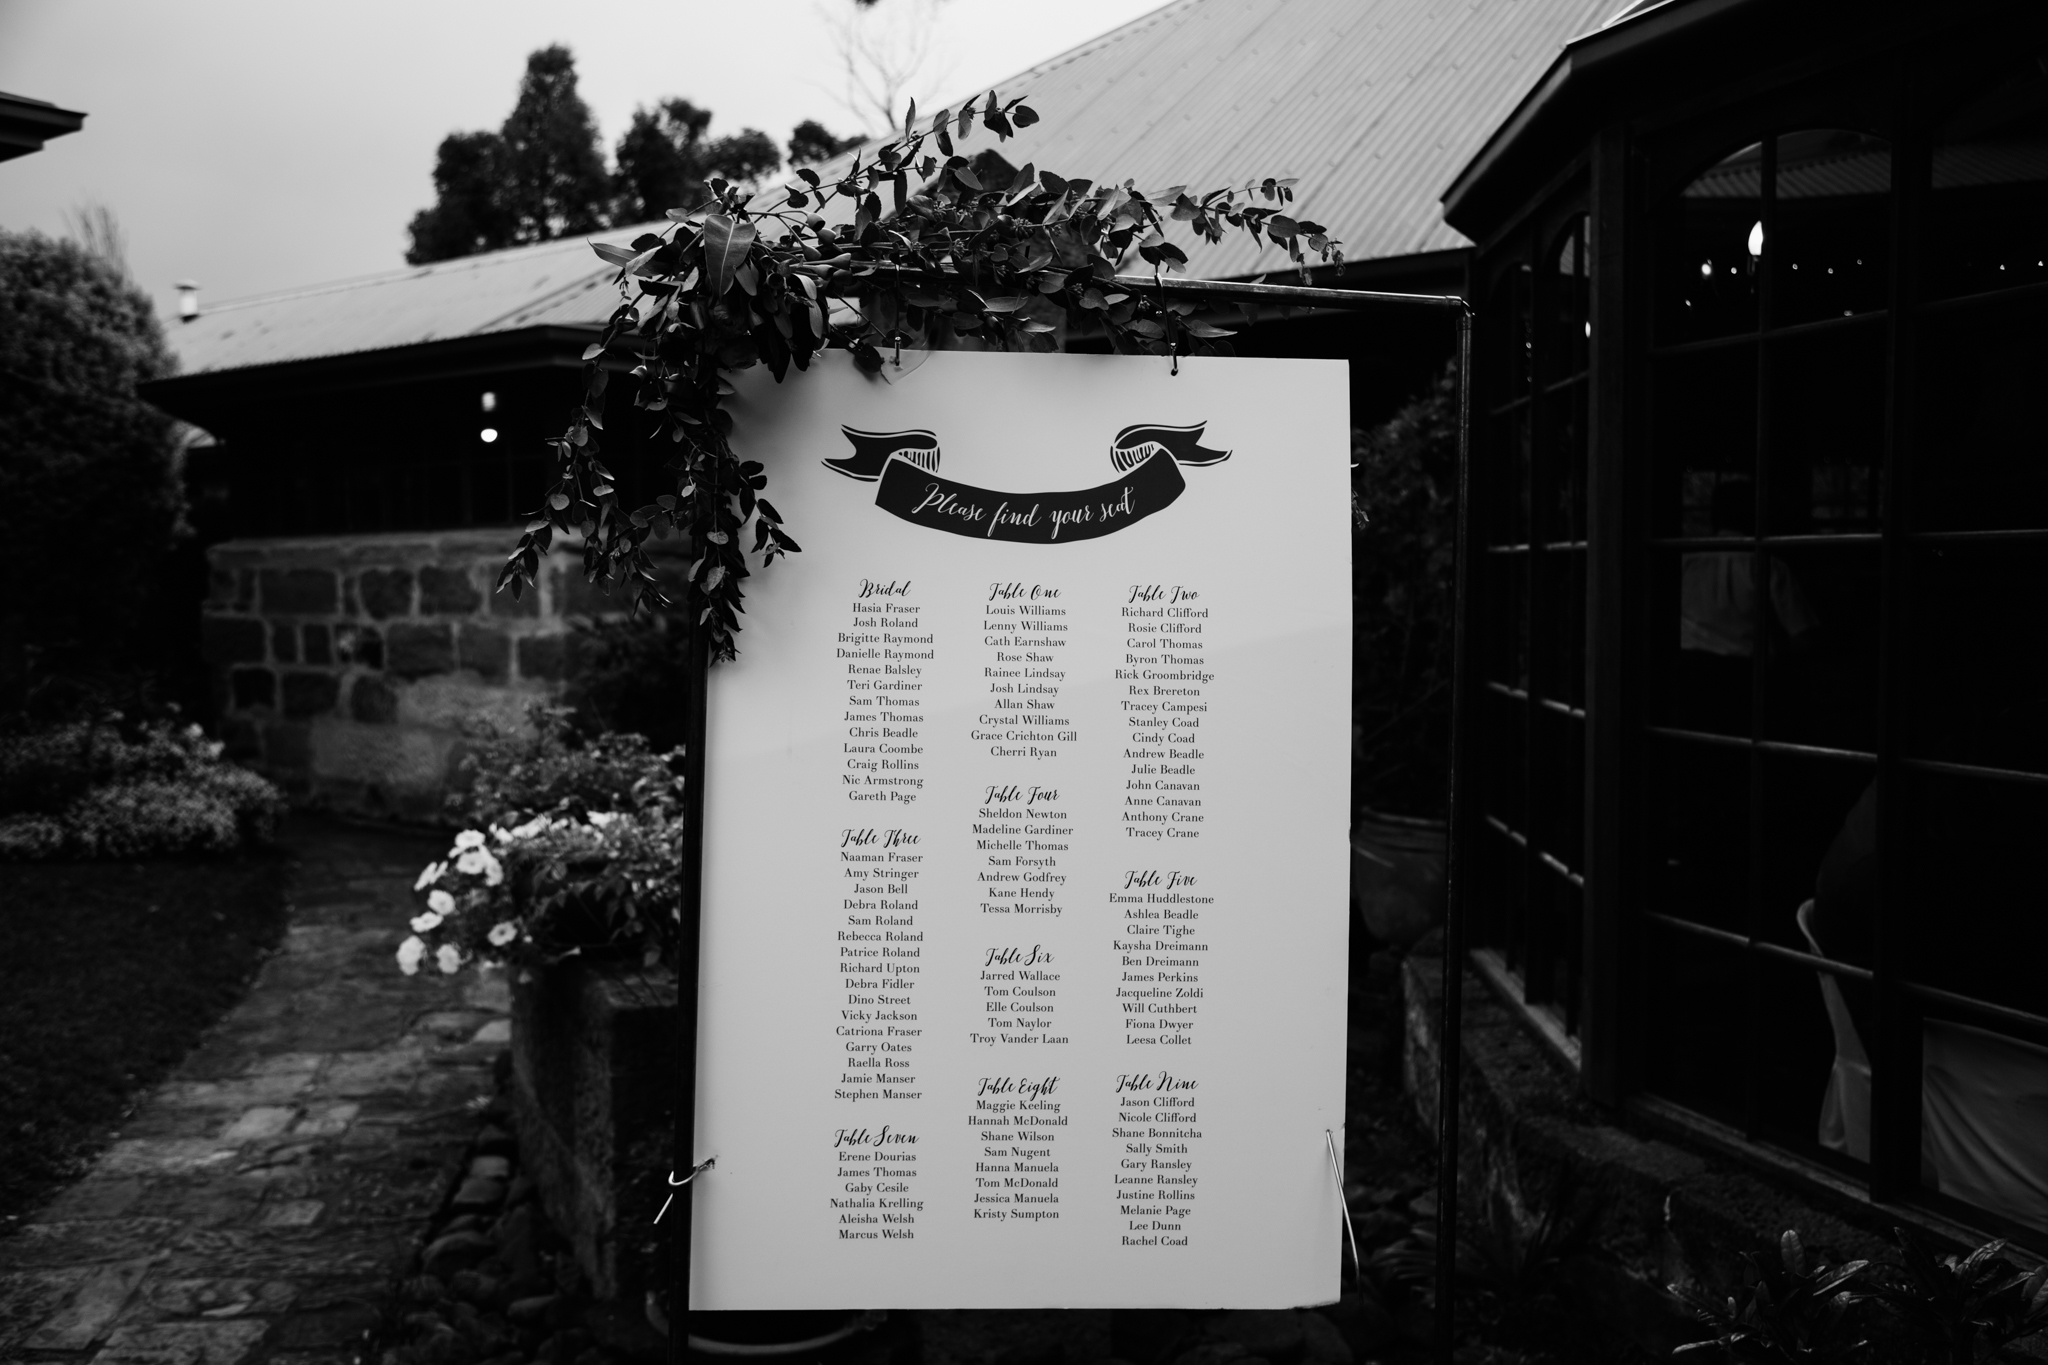 Please find your seat
Bridal
Hasia Fraser
Josh Roland
Brigitte Raymond
Danielle Raymond
Renae Balsley
Teri Gardiner
Sam Thomas
James Thomas
Chris Beadle
Laura Coombe
Craig Rollins
Nic Armstrong
Gareth Page
Table One
Louis Williams
Lenny Williams
Cath Earnshaw
Rose Shaw
Rainee Lindsay
Josh Lindsay
Allan Shaw
Crystal Williams
Grace Crichton Gill
Cherri Ryan
Table Two
Richard Clifford
Rosie Clifford
Carol Thomas
Byron Thomas
Rick Groombridge
Rex Brereton
Tracey Campesi
Stanley Coad
Cindy Coad
Andrew Beadle
Julie Beadle
John Canavan
Anne Canavan
Anthony Crane
Tracey Crane
Table Three
Naaman Fraser
Amy Stringer
Jason Bell
Debra Roland
Sam Roland
Rebecca Roland
Patrice Roland
Richard Upton
Debra Fidler
Dino Street
Vicky Jackson
Catriona Fraser
Garry Oates
Raella Ross
Jamie Manser
Stephen Manser
Table Four
Sheldon Newton
Madeline Gardiner
Michelle Thomas
Sam Forsyth
Andrew Godfrey
Kane Hendy
Tessa Morrisby
Table Five
Emma Huddlestone
Ashlea Beadle
Claire Tighe
Kaysha Dreimann
Ben Dreimann
James Perkins
Jacqueline Zoldi
Will Cuthbert
Fiona Dwyer
Leesa Collet
Table Six
Jarred Wallace
Tom Coulson
Elle Coulson
Tom Naylor
Troy Vander Laan
Table Seven
Erene Dourias
James Thomas
Gaby Cesile
Nathalia Krelling
Aleisha Welsh
Marcus Welsh
Table Eight
Maggie Keeling
Hannah McDonald
Shane Wilson
Sam Nugent
Hanna Manuela
Tom McDonald
Jessica Manuela
Kristy Sumpton
Table Nine
Jason Clifford
Nicole Clifford
Shane Bonnitcha
Sally Smith
Gary Ransley
Leanne Ransley
Justine Rollins
Melanie Page
Lee Dunn
Rachel Coad